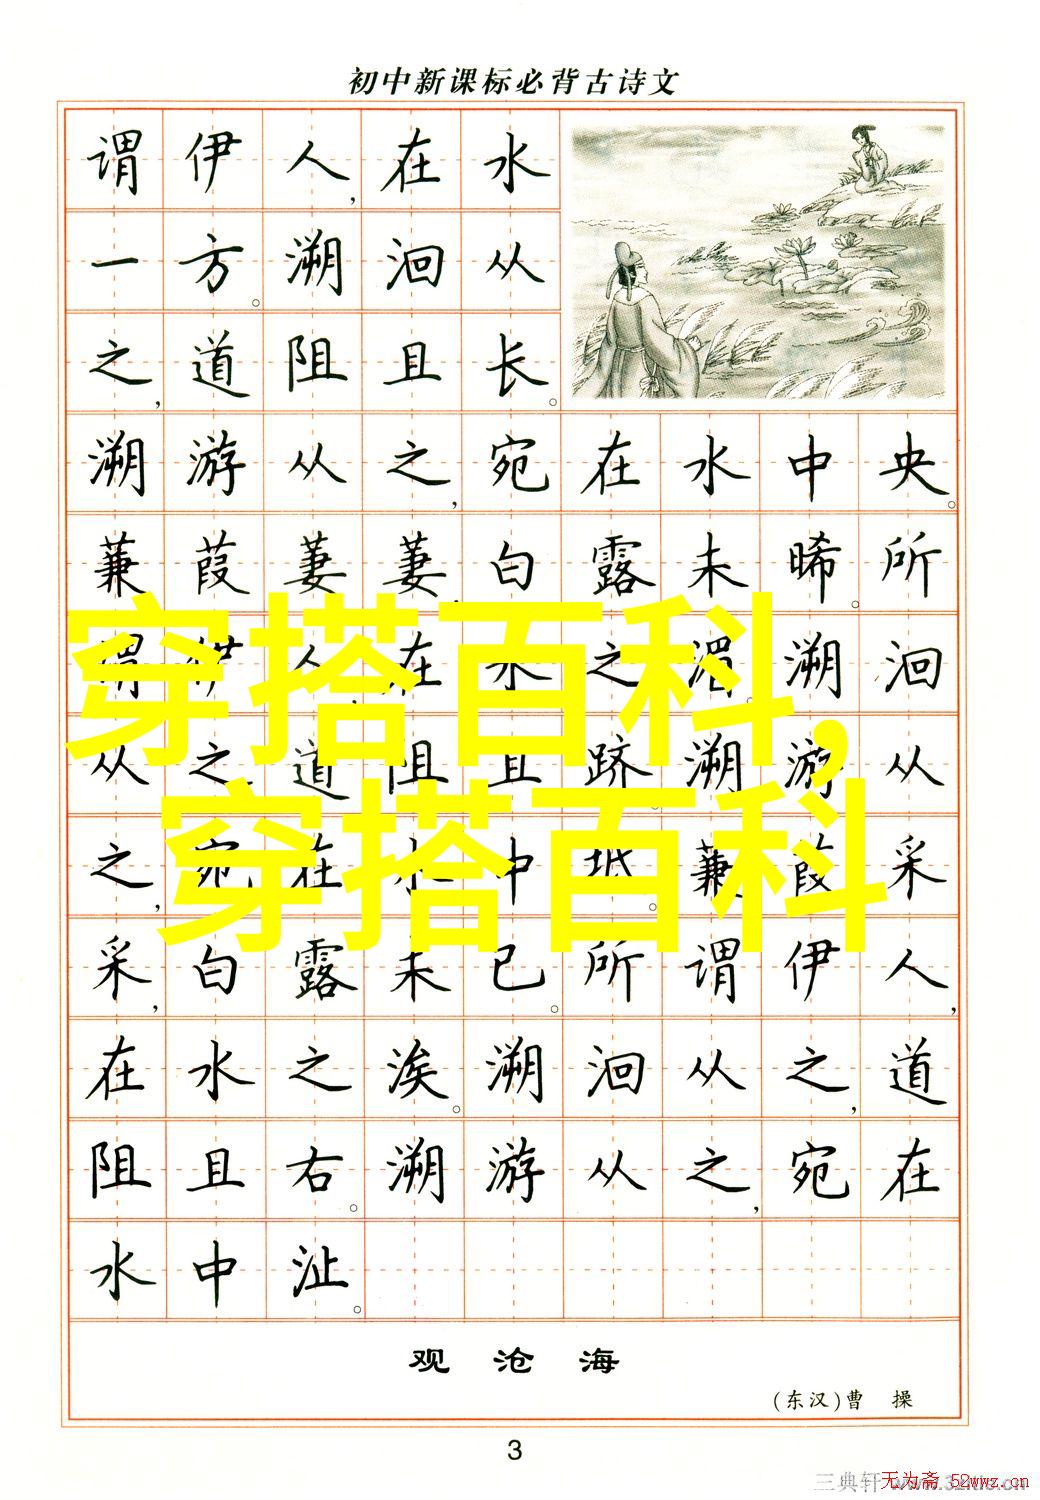 初中新课标必背古诗文
谓伊人,在水
一方。溯洄从
之,道阻且长。
溯游从之,宛在水中央。
蒹葭萋萋,白露未晞。所
谓伊人,在水之湄。溯洄
穿搭百科,
从之,道阻且跻。溯游从
穿搭百科
之,宛在水中坻。蒹葭采
采,白露未已。所谓伊人,
在水之涘。溯洄从之,道
阻且右。溯游从之,宛在
水中沚。
观沧海
(东汉)曹操
3
无为斋 52wwz.cn